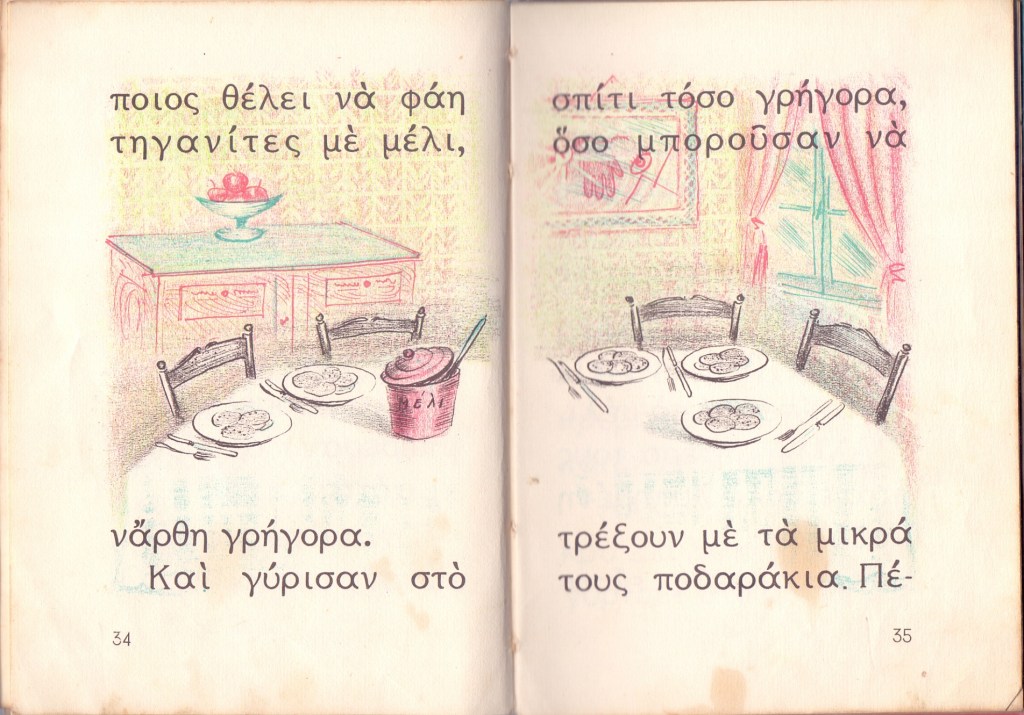 ποιος θέλει νὰ φάη
τηγανίτες μὲ μέλι,
ΜΕΛΙ
νἄρθη γρήγορα.
Καὶ γύρισαν στὸ
34
σπίτι τόσο γρήγορα,
ὅσο μποροῦσαν νὰ
τρέξουν μὲ τὰ μικρά
τους ποδαράκια. Πέ-
35